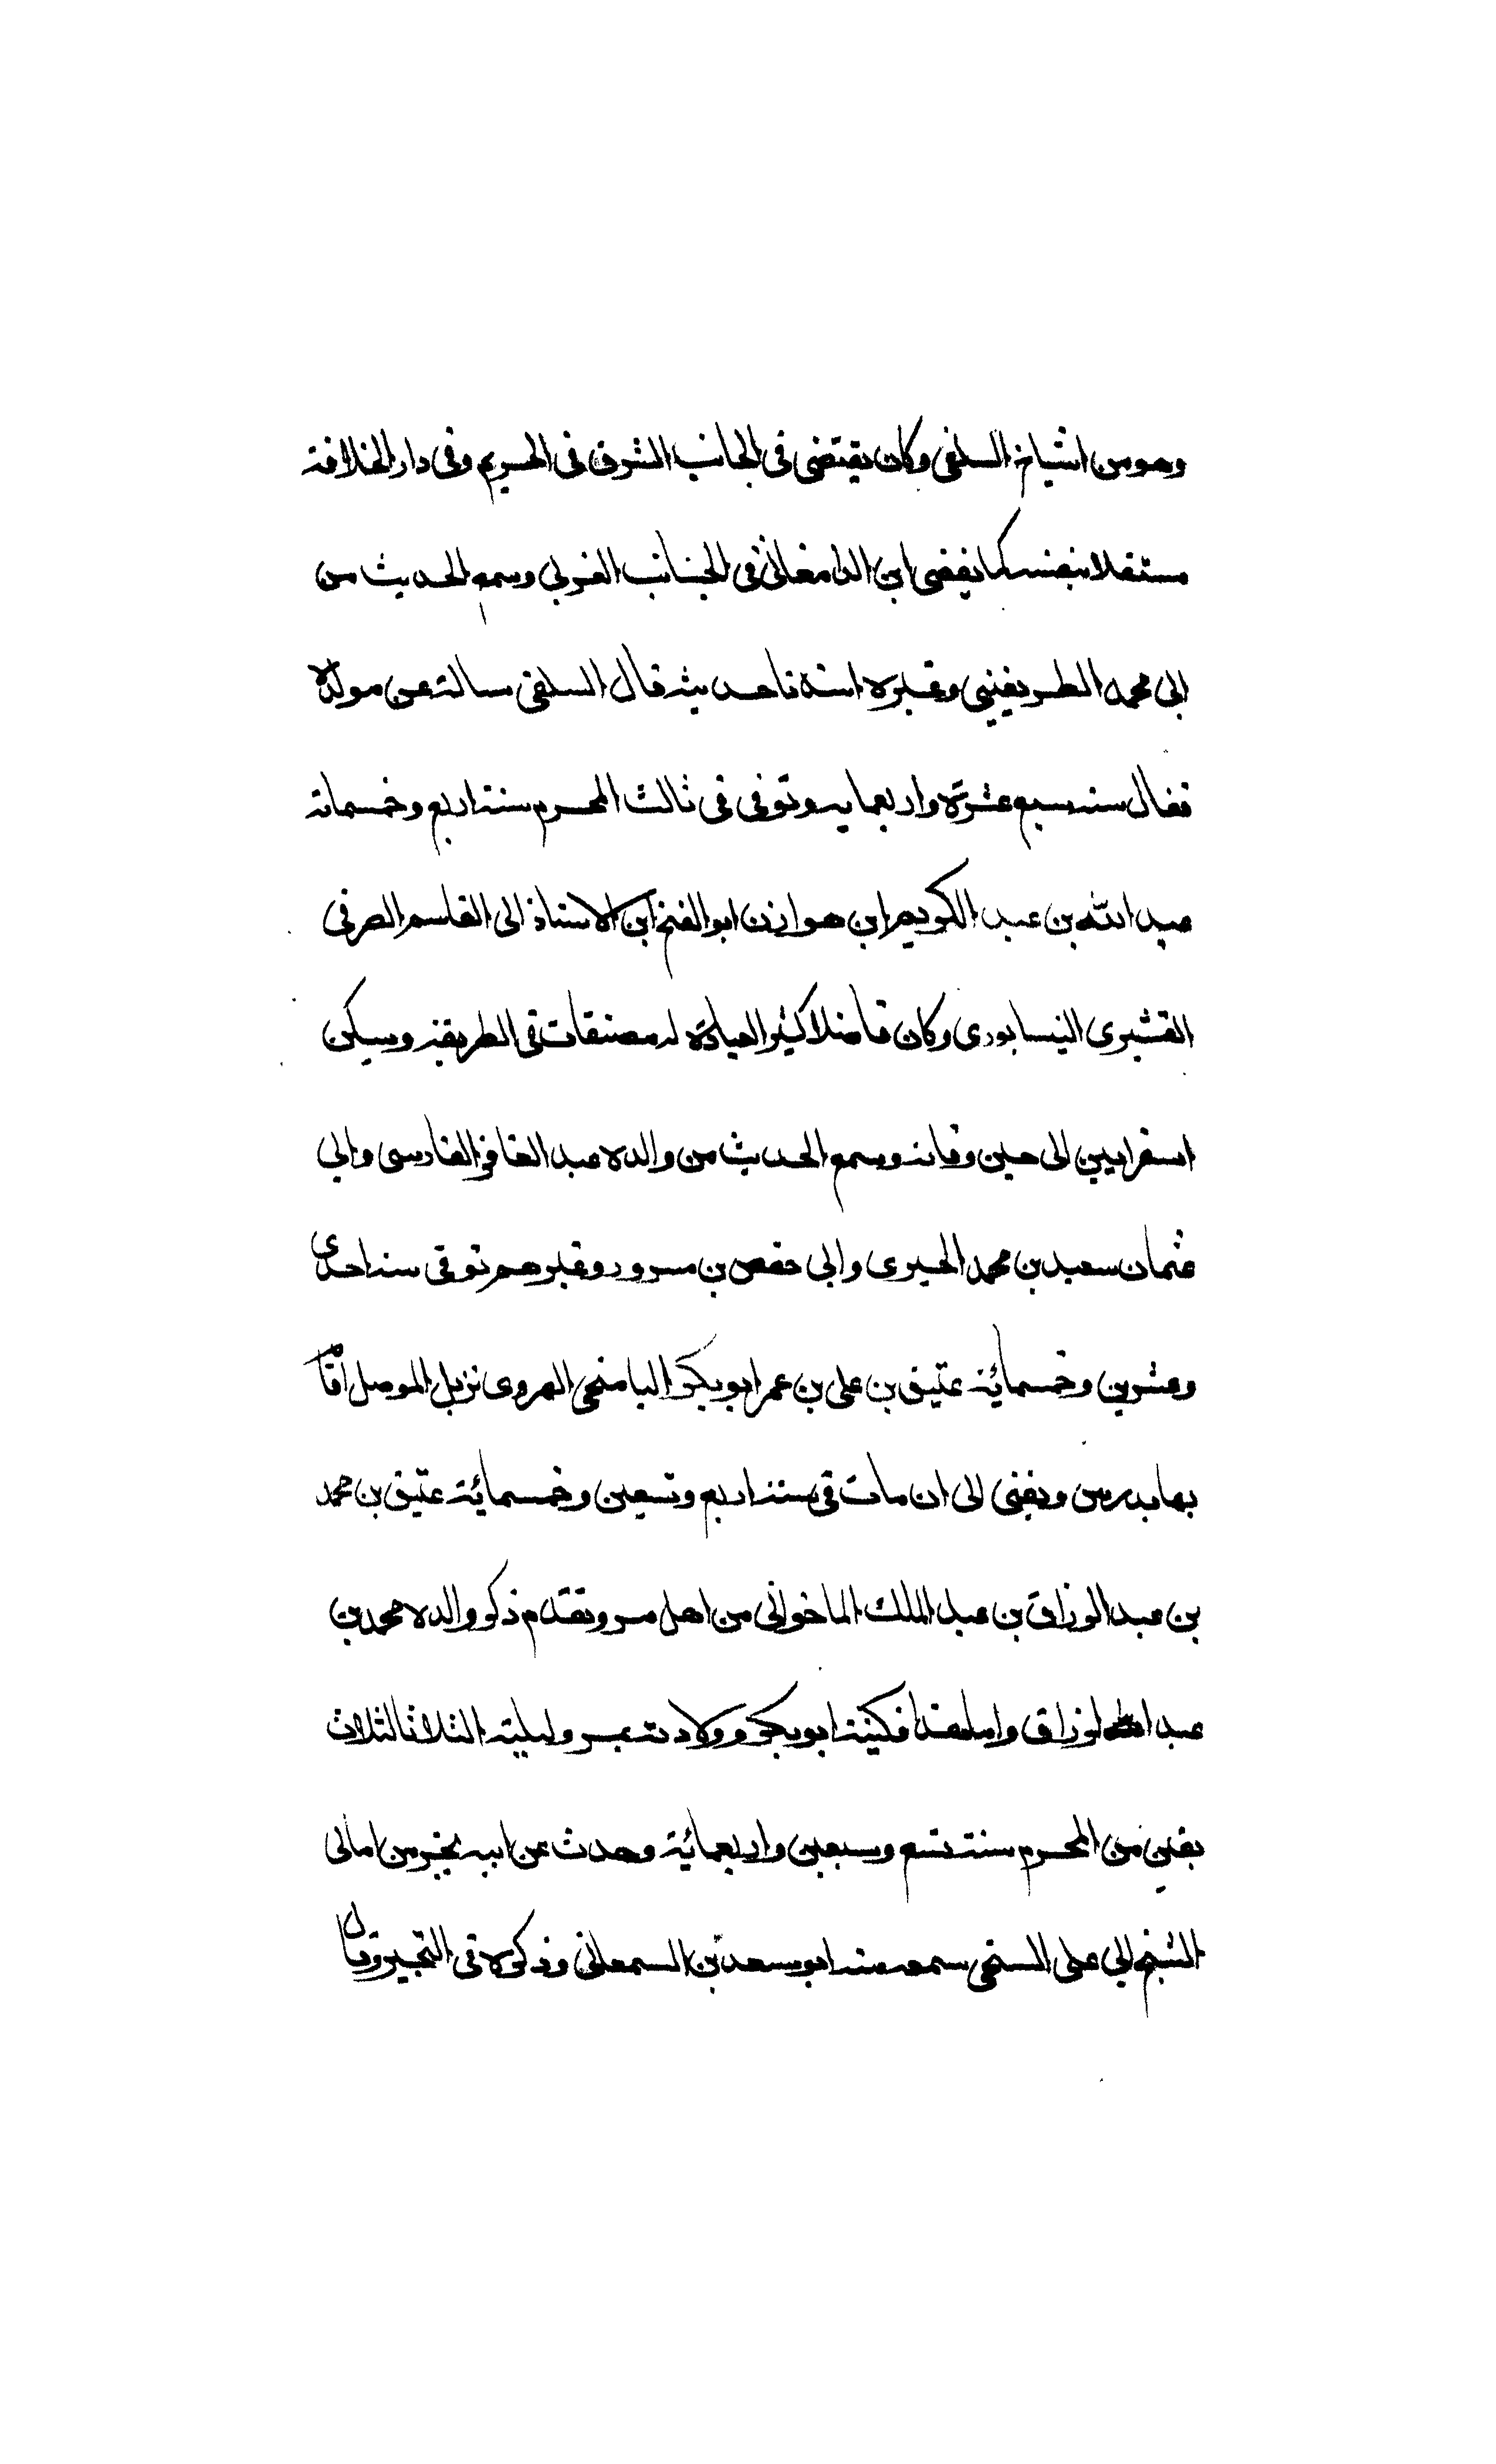 وهو من اشياخ السلفى وكان يقتضى فى الجانب الشرقى فى الحريم وفى دار الخلافة
مستقلا بنفسه كما يقضى ابن الدامغانى فى الجانب الغربى وسمع الحديث من
ابى محمد الطريفينى وغيره اسند ناحديثه قال السلفى سالته عن مولده
فقال سنه سبع عشرة واربعمايه وتوفى فى ثالث المحرم سنة اربع وخمسمائة
عبد الله بن عبد الكريم ابن هوازن ابو الفتح ابن الاستاذ ابى القاسم الصرفى
القشيرى النيسابورى وكان فاضلا كثير العبادة له مصنفات فى الطريقة وسكن
اسفرايين الى حين وفاته وسمع الحديث من والده عبد الغافر الفارسى وابى
عثمان سعيد بن محمد الحيرى وابى حفص بن مسرور وغيرهم توفى سنة احدى
وعشرين وخمسمائة عتيق بن على بن عمر ابو بكر البامنجى الهروى نزيل الموصل اقام
بها يدرس ويفتى الى ان مات فى سنة اربع وتسعين وخمسمائة عتيق بن محمد
بن عبد الرزاق بن عبد الملك الماخوانى من اهل مرو تقدم ذكر والده محمد بن
عبد الرزاق واما هذا فكنيته ابو بكر وولادته بمرو ليلة الثلاثا لثلاث
بقين من المحرم سنة تسع وسبعين واربعمائة وحدث عن ابيه بخبر من امالى
الشيخ ابى على السنجى سمعه منه ابو سعد بن السمعانى وذكره فى التحبير وقال